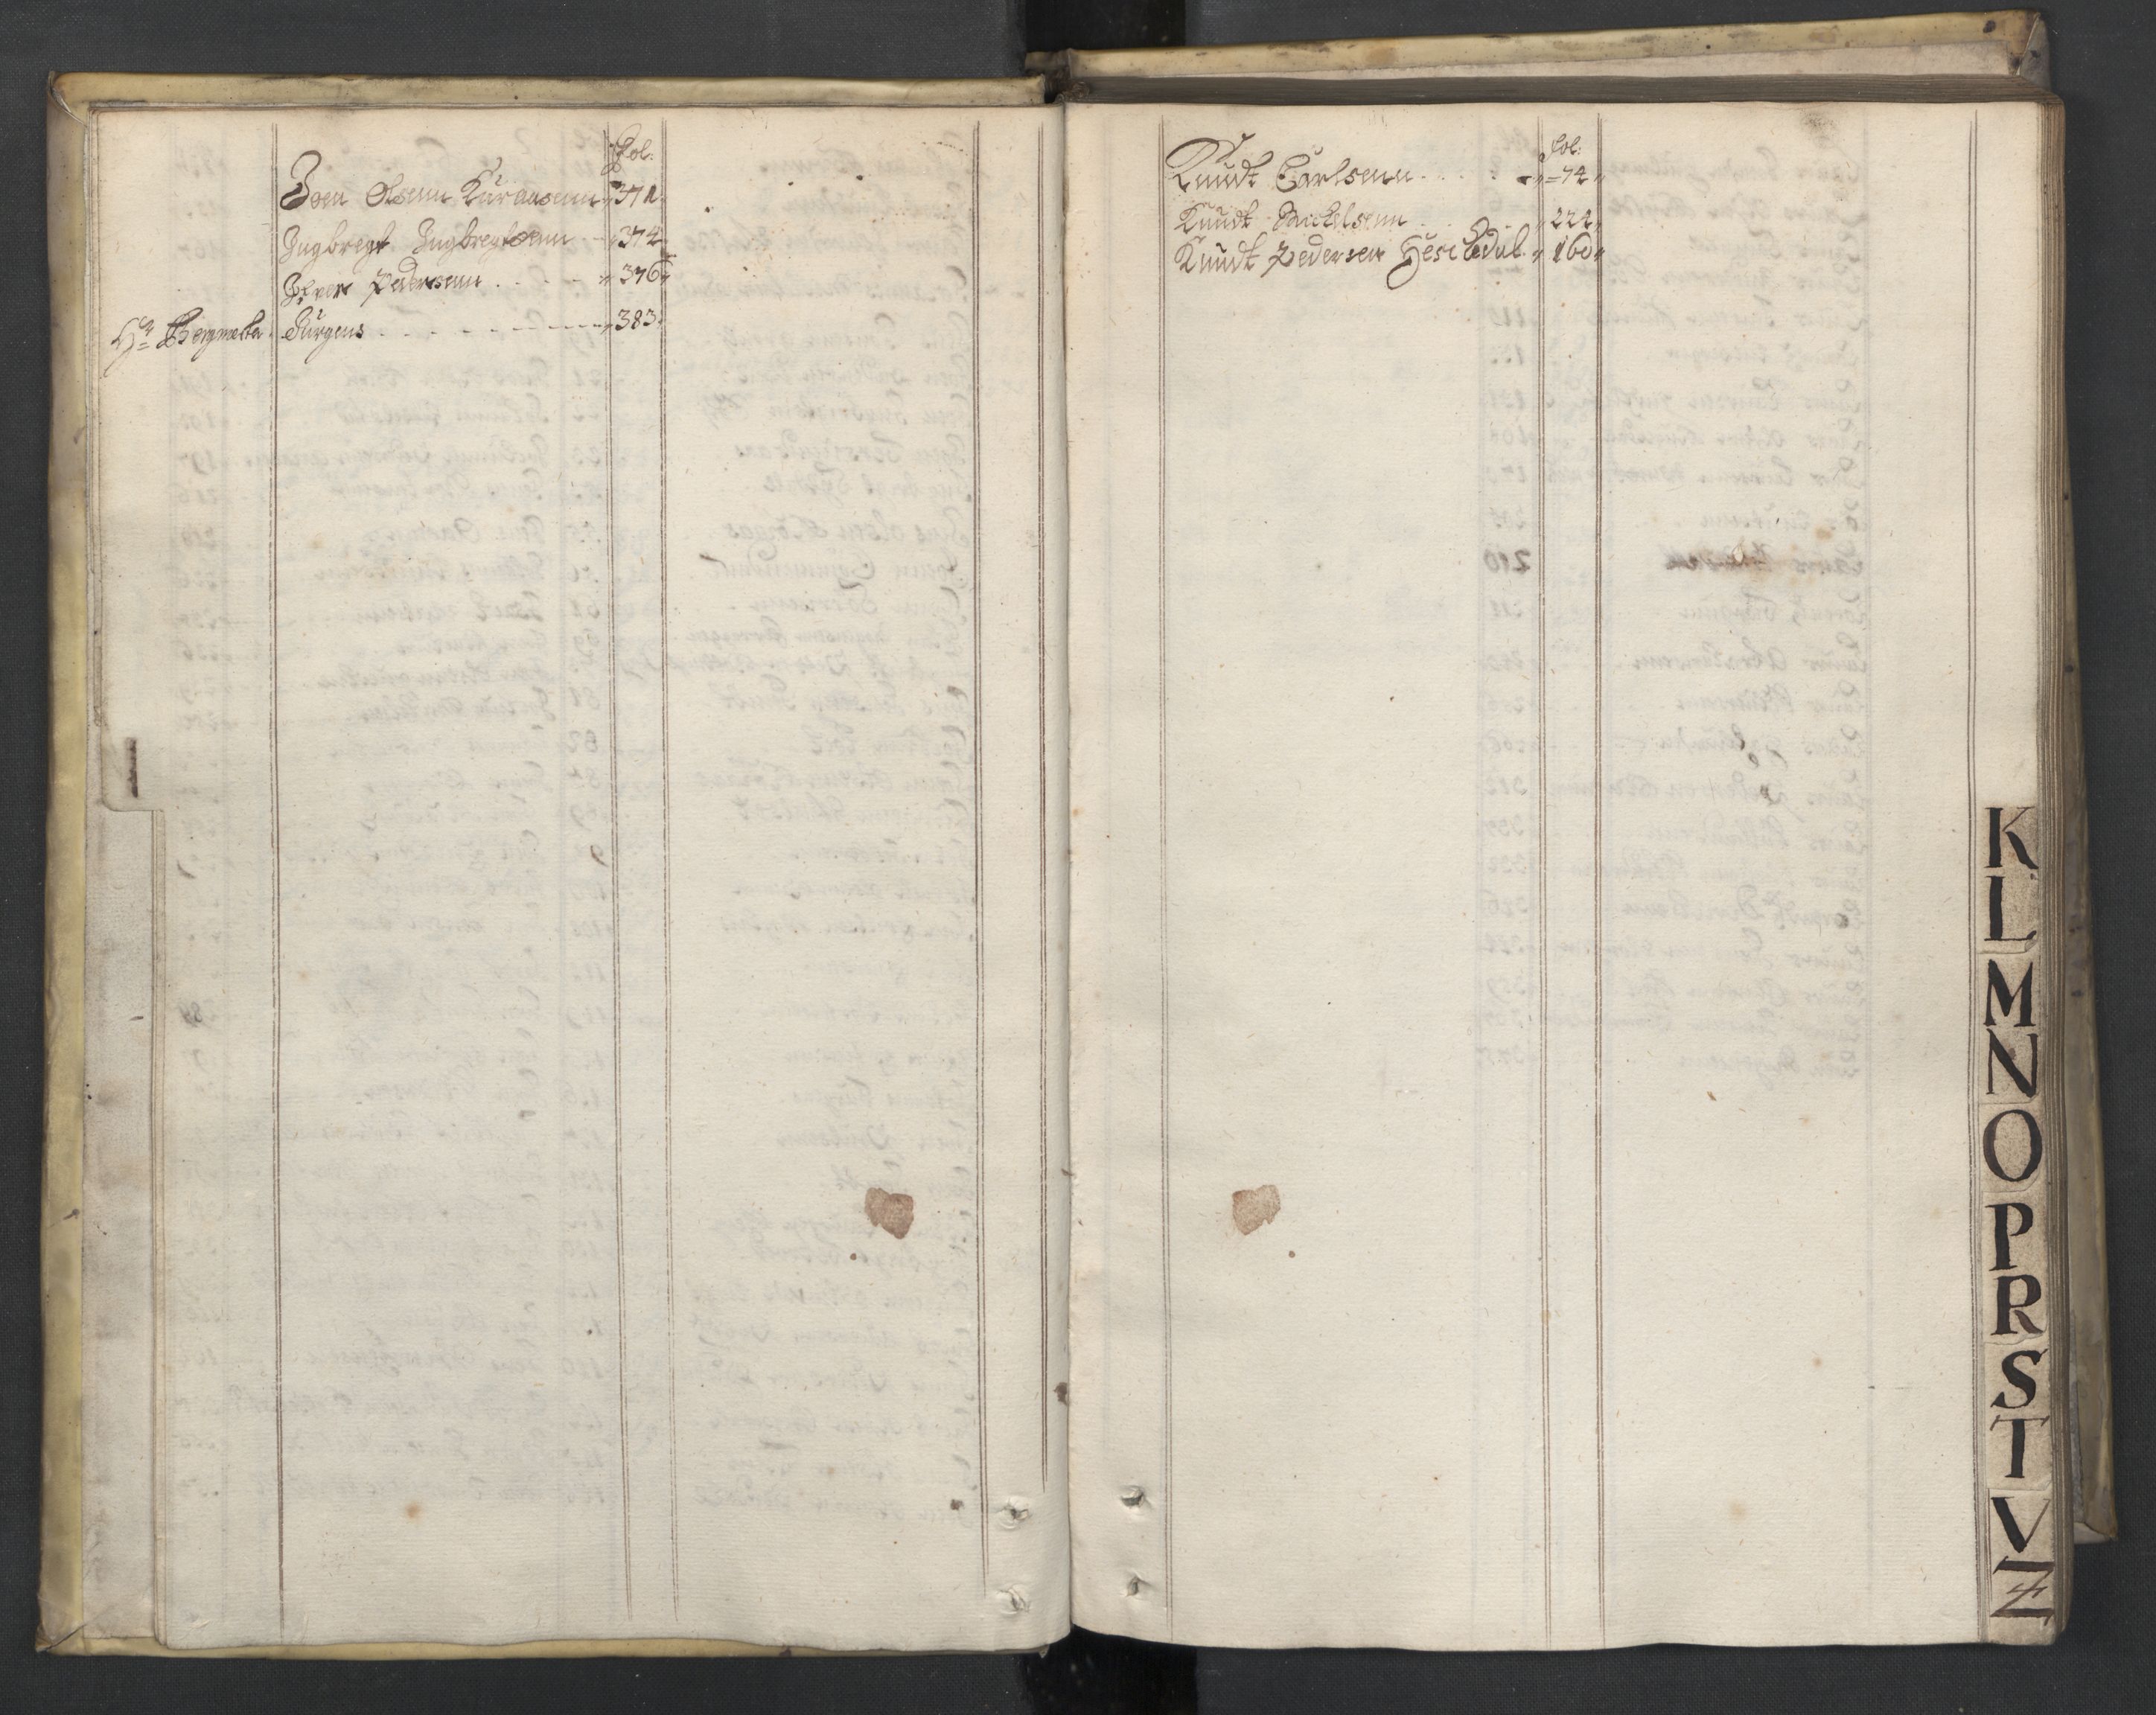 Fol:
Joen Olsenn Küraasenn 371.
Ingbregt Ingbregtsenn - 374
Iver Pedersenn . . . . 376
Hr Bergmester Jürgens . - - - - - - - - 383.
Fol:
Knudt Carlsenn . . . . = 74
Knudt Mickelsenn . . . 222
Knudt Pedersen 160
K
L
M
N
O
P
R
S
T
V
Z